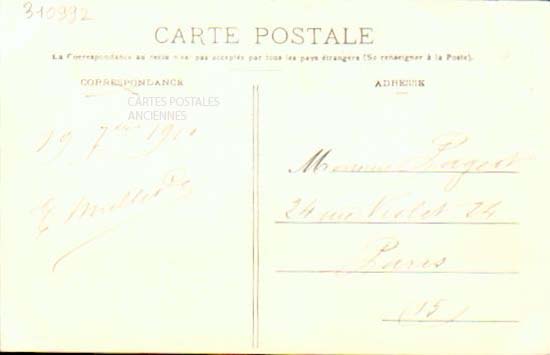 310992
CARTE POSTALE
La Correspondance au recto n'est pas acceptée par tous les pays étrangers (Se renseigner à la Poste).
CORRESPONDANCE
ADRESSE
CARTES POSTALES
ANCIENNES
19 7bre 1911
E
Monsieur
24 rue Violet 24
Paris
(15)